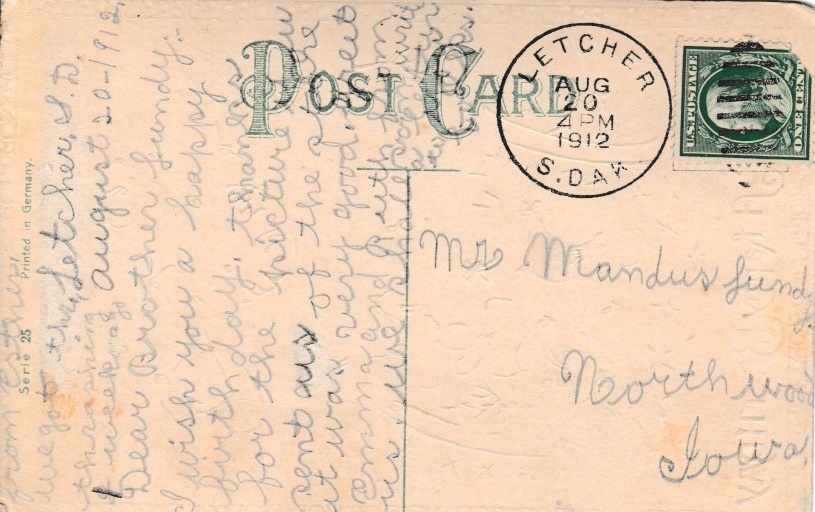 POST CARD
LETCHER
AUG
20
4 PM
1912
S. DAK.
U.S. POSTAGE
ONE CENT
Mr Mandus Lundy
Northwood
Iowa
Serie 25 Printed in Germany.
Letcher, S.D.
August 20-1912,
Dear Brother Lundy:
I wish you a happy
birthday, thanks
for the picture you
sent us of the store
it was very good.
Emma and Ruth
us, we shall
from Esther,
we got the
thrashing
1 week ago